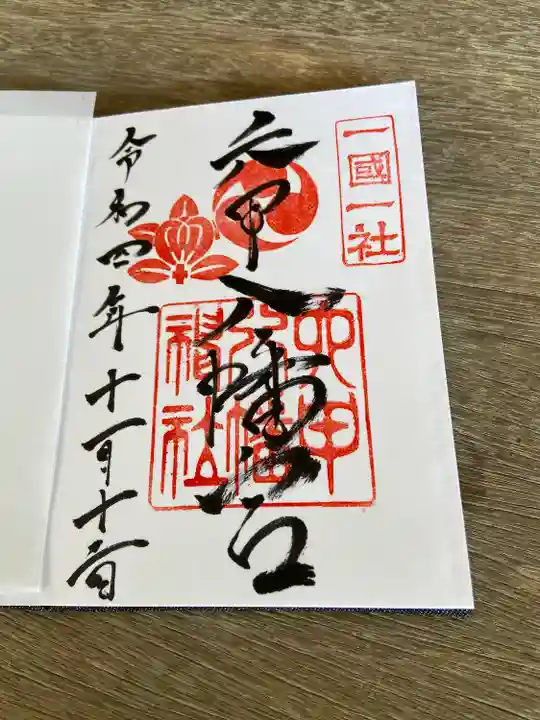 一國一社
六甲八幡宮
六甲
八幡
神社
令和四年十一月十二日